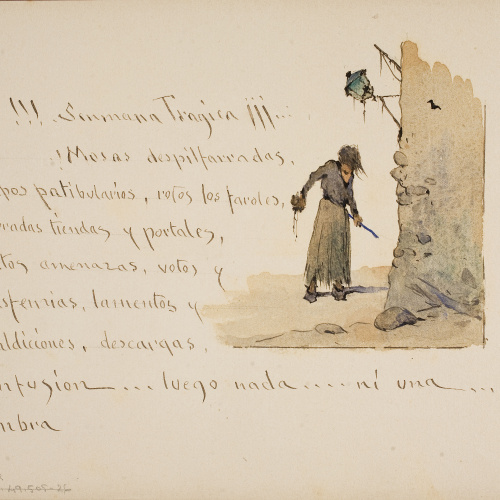 !!! Semmana Tragica !!!...
¡Mosas despilfarradas,
pos patibularios, rotos los faroles,
rradas tiendas y portales,
tos amenazas, votos y
sfemias, lamentos y
aldiciones, descargas,
nfusion ... luego nada .... ni una ...
mbra
49-505-26